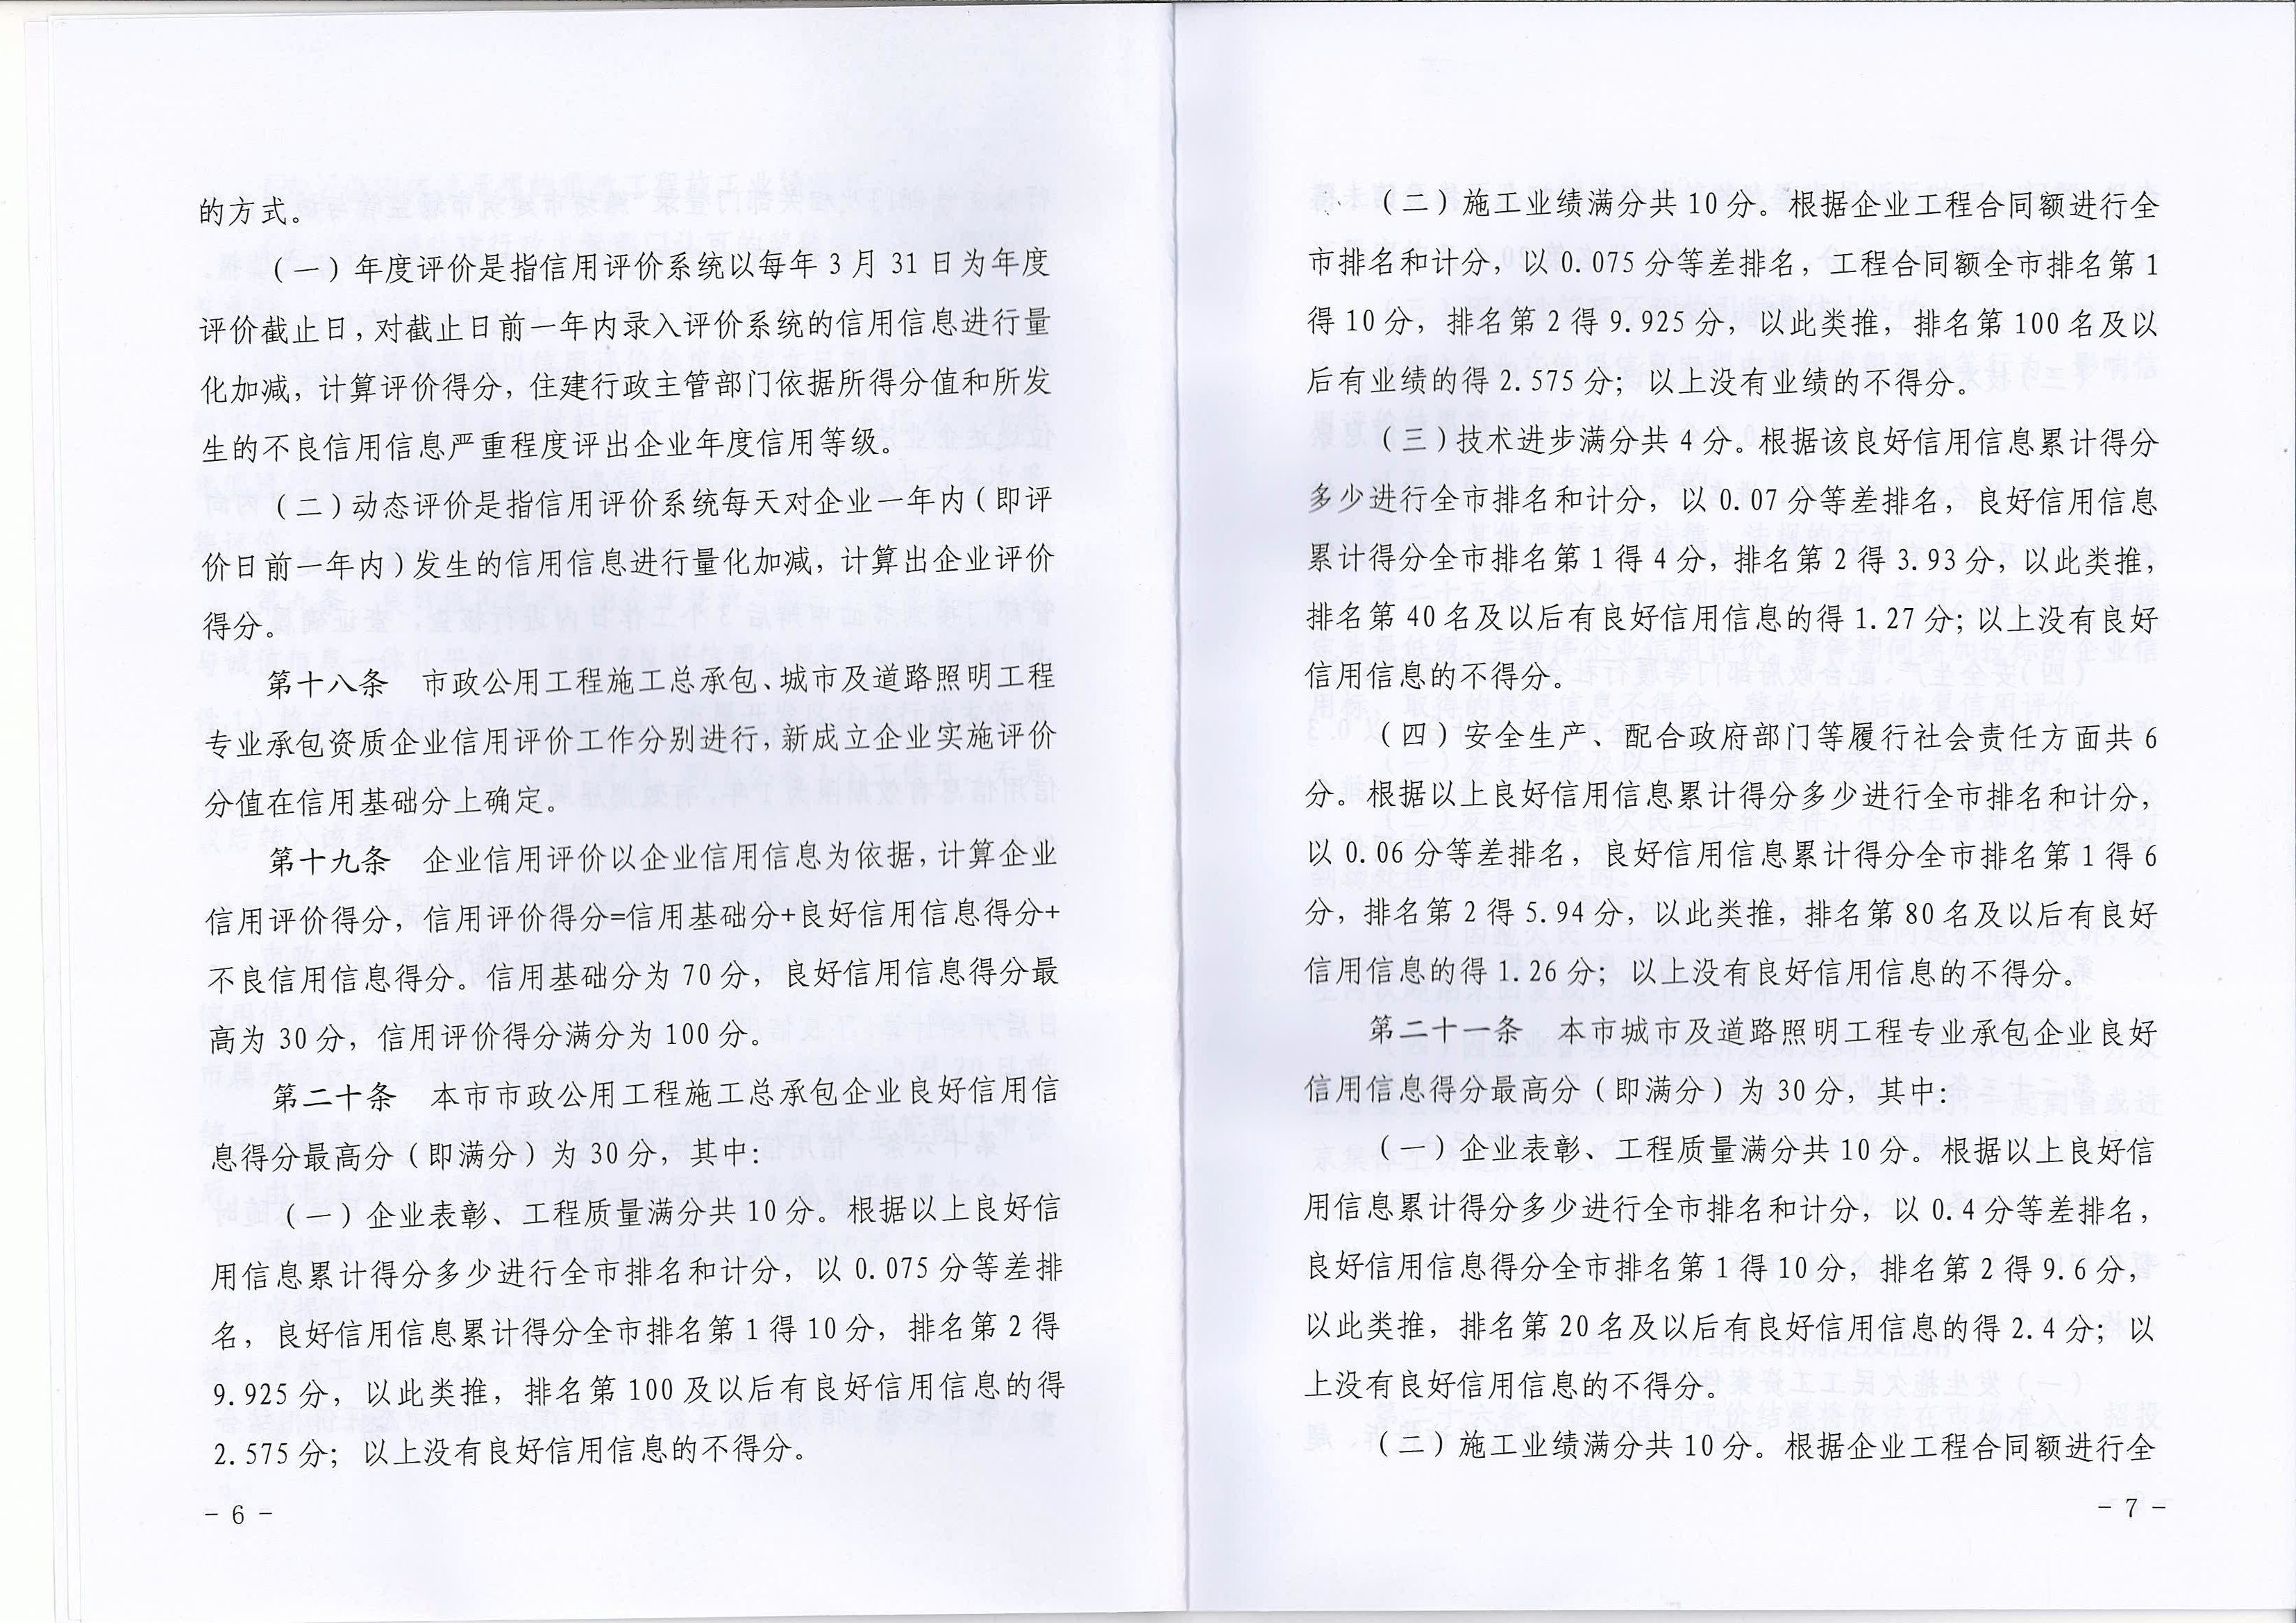 的方式。
（一）年度评价是指信用评价系统以每年 3 月 31 日为年度
评价截止日，对截止日前一年内录入评价系统的信用信息进行量
化加减，计算评价得分，住建行政主管部门依据所得分值和所发
生的不良信用信息严重程度评出企业年度信用等级。
（二）动态评价是指信用评价系统每天对企业一年内（即评
价日前一年内）发生的信用信息进行量化加减，计算出企业评价
得分。
第十八条　市政公用工程施工总承包、城市及道路照明工程
专业承包资质企业信用评价工作分别进行，新成立企业实施评价
分值在信用基础分上确定。
第十九条　企业信用评价以企业信用信息为依据，计算企业
信用评价得分，信用评价得分=信用基础分+良好信用信息得分+
不良信用信息得分。信用基础分为 70 分，良好信用信息得分最
高为 30 分，信用评价得分满分为 100 分。
第二十条　本市市政公用工程施工总承包企业良好信用信
息得分最高分（即满分）为 30 分，其中：
（一）企业表彰、工程质量满分共 10 分。根据以上良好信
用信息累计得分多少进行全市排名和计分，以 0.075 分等差排
名，良好信用信息累计得分全市排名第 1 得 10 分，排名第 2 得
9.925 分，以此类推，排名第 100 及以后有良好信用信息的得
2.575 分；以上没有良好信用信息的不得分。
- 6 -
（二）施工业绩满分共 10 分。根据企业工程合同额进行全
市排名和计分，以 0.075 分等差排名，工程合同额全市排名第 1
得 10 分，排名第 2 得 9.925 分，以此类推，排名第 100 名及以
后有业绩的得 2.575 分；以上没有业绩的不得分。
（三）技术进步满分共 4 分。根据该良好信用信息累计得分
多少进行全市排名和计分，以 0.07 分等差排名，良好信用信息
累计得分全市排名第 1 得 4 分，排名第 2 得 3.93 分，以此类推，
排名第 40 名及以后有良好信用信息的得 1.27 分；以上没有良好
信用信息的不得分。
（四）安全生产、配合政府部门等履行社会责任方面共 6
分。根据以上良好信用信息累计得分多少进行全市排名和计分，
以 0.06 分等差排名，良好信用信息累计得分全市排名第 1 得 6
分，排名第 2 得 5.94 分，以此类推，排名第 80 名及以后有良好
信用信息的得 1.26 分；以上没有良好信用信息的不得分。
第二十一条　本市城市及道路照明工程专业承包企业良好
信用信息得分最高分（即满分）为 30 分，其中：
（一）企业表彰、工程质量满分共 10 分。根据以上良好信
用信息累计得分多少进行全市排名和计分，以 0.4 分等差排名，
良好信用信息得分全市排名第 1 得 10 分，排名第 2 得 9.6 分，
以此类推，排名第 20 名及以后有良好信用信息的得 2.4 分；以
上没有良好信用信息的不得分。
（二）施工业绩满分共 10 分。根据企业工程合同额进行全
- 7 -